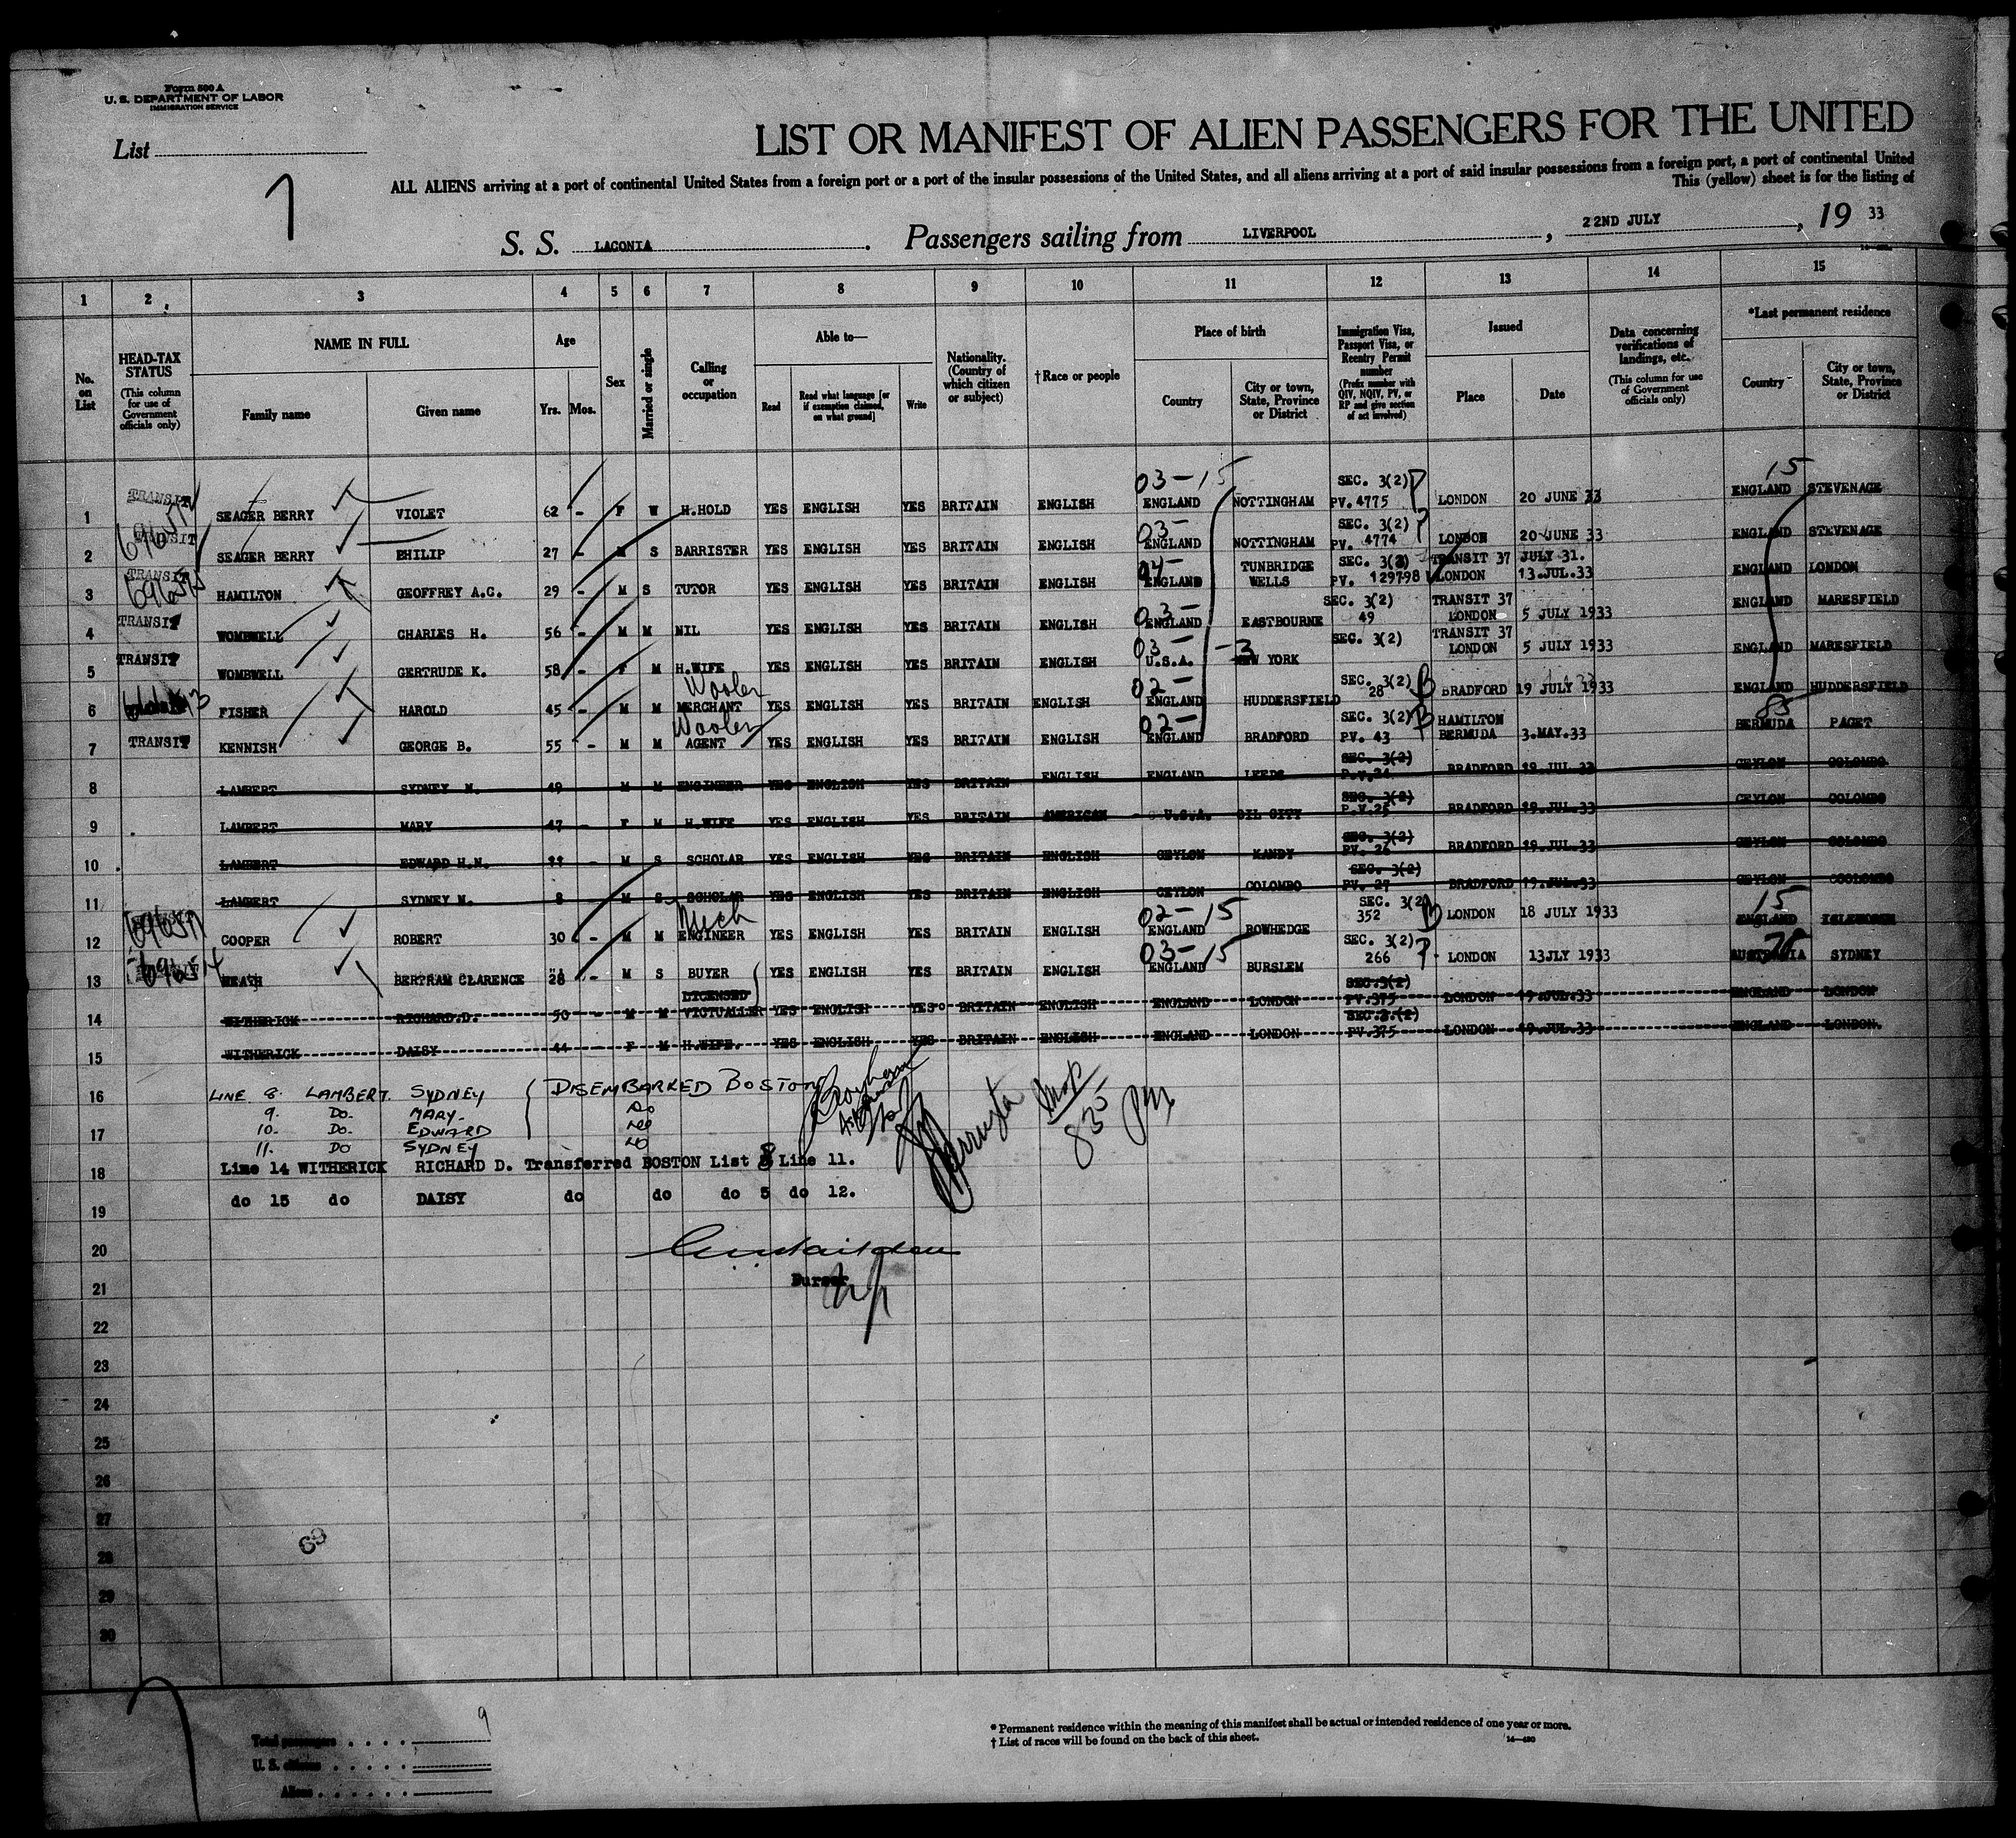 Form 500 A
U. S. DEPARTMENT OF LABOR
IMMIGRATION SERVICE
List
7
LIST OR MANIFEST OF ALIEN PASSENGERS FOR THE UNITED
ALL ALIENS arriving at a port of continental United States from a foreign port or a port of the insular possessions of the United States, and all aliens arriving at a port of said insular possessions from a foreign port, a port of continental United
This (yellow) sheet is for the listing of
S. S. LACONIA. Passengers sailing from LIVERPOOL, 22ND JULY, 19 33
1 2 3 4 5 6 7 8 9 10 11 12 13 14 15
No. on List
HEAD-TAX STATUS (This column for use of Government officials only)
NAME IN FULL Family name Given name
Age Yrs. Mos.
Sex
Married or single
Calling or occupation
Able to— Read Read what language [or if exemption claimed, on what ground] Write
Nationality. (Country of which citizen or subject)
†Race or people
Place of birth Country City or town, State, Province or District
Immigration Visa, Passport Visa, or Reentry Permit number (Prefix number with QIV, NQIV, PV, or RP and give section of act involved)
Issued Place Date
Data concerning verifications of landings, etc. (This column for use of Government officials only)
*Last permanent residence Country City or town, State, Province or District
1 TRANSIT SEAGER BERRY VIOLET 62 - F W H.HOLD YES ENGLISH YES BRITAIN ENGLISH 03-15 ENGLAND NOTTINGHAM SEC. 3(2) PV. 4775 LONDON 20 JUNE 33 15 ENGLAND STEVENAGE
2 TRANSIT SEAGER BERRY PHILIP 27 - M S BARRISTER YES ENGLISH YES BRITAIN ENGLISH 03- ENGLAND NOTTINGHAM SEC. 3(2) PV. 4774 LONDON 20 JUNE 33 ENGLAND STEVENAGE
3 TRANSIT HAMILTON GEOFFREY A.C. 29 - M S TUTOR YES ENGLISH YES BRITAIN ENGLISH ENGLAND TUNBRIDGE WELLS SEC. 3(2) PV. 129798 TRANSIT 37 JULY 31. LONDON 13.JUL.33 ENGLAND LONDON
4 TRANSIT WOMBWELL CHARLES H. 56 - M M NIL YES ENGLISH YES BRITAIN ENGLISH 03- ENGLAND EASTBOURNE SEC. 3(2) 49 TRANSIT 37 LONDON 5 JULY 1933 ENGLAND MARESFIELD
5 TRANSIT WOMBWELL GERTRUDE K. 58 - F M H.WIFE YES ENGLISH YES BRITAIN ENGLISH 03 - 3 U.S.A. NEW YORK SEC. 3(2) TRANSIT 37 LONDON 5 JULY 1933 ENGLAND MARESFIELD
6 FISHER HAROLD 45 - M M Woolen MERCHANT YES ENGLISH YES BRITAIN ENGLISH 02- ENGLAND HUDDERSFIELD SEC. 3(2) 28 B BRADFORD 19 JULY 1933 ENGLAND HUDDERSFIELD
7 TRANSIT KENNISH GEORGE B. 55 - M M Woolen AGENT YES ENGLISH YES BRITAIN ENGLISH 02- ENGLAND BRADFORD SEC. 3(2) PV. 43 B HAMILTON BERMUDA 3.MAY.33 85 BERMUDA PAGET
8 LAMBERT SYDNEY N. 49 M M ENGINEER YES ENGLISH YES BRITAIN ENGLISH ENGLAND LEEDS SEC. 3(2) P.V.24 BRADFORD 19.JUL.33 CEYLON COLOMBO
9 LAMBERT MARY 47 - F M H.WIFE YES ENGLISH YES BRITAIN AMERICAN U.S.A. OIL CITY SEC. 3(2) P.V.25 BRADFORD 19.JUL.33 CEYLON COLOMBO
10 LAMBERT EDWARD H.N. 11 - M S SCHOLAR YES ENGLISH YES BRITAIN ENGLISH CEYLON KANDY SEC. 3(2) PV. 26 BRADFORD 19.JUL.33 CEYLON COLOMBO
11 LAMBERT SYDNEY N. 8 M S SCHOLAR YES ENGLISH YES BRITAIN ENGLISH CEYLON COLOMBO SEC. 3(2) PV. 27 BRADFORD 19.JUL.33 CEYLON COOLOMBO
12 COOPER ROBERT 30 - M M Mech ENGINEER YES ENGLISH YES BRITAIN ENGLISH 02-15 ENGLAND ROWHEDGE SEC. 3(2) 352 B LONDON 18 JULY 1933 15 ENGLAND ISLEWORTH
13 HEATH BERTRAM CLARENCE 28 - M S BUYER YES ENGLISH YES BRITAIN ENGLISH 03-15 ENGLAND BURSLEM SEC. 3(2) 266 LONDON 13JLY 1933 AUSTRALIA SYDNEY
14 WITHERICK RICHARD.D. 50 - M M LICENSED VICTUALLER YES ENGLISH YES BRITAIN ENGLISH ENGLAND LONDON SEC.3(2) PV.375 LONDON 19.JUL.33 ENGLAND LONDON
15 WITHERICK DAISY 44 F M H.WIFE. YES ENGLISH YES BRITAIN ENGLISH ENGLAND LONDON SEC.3.(2) PV.375 LONDON 19.JUL.33 ENGLAND LONDON.
16 LINE 8. LAMBERT SYDNEY DISEMBARKED BOSTON
9. DO. MARY. DO
17 10. DO. EDWARD DO
11. DO SYDNEY DO
835 PM
18 Line 14 WITHERICK RICHARD D. Transferred BOSTON List 8 Line 11.
19 do 15 do DAISY do do do 5 do 12.
20
Purser
21
22
23
24
25
26
27
28
29
30
69
Total passengers 9
U. S. citizens
Aliens
* Permanent residence within the meaning of this manifest shall be actual or intended residence of one year or more.
† List of races will be found on the back of this sheet.
14—480